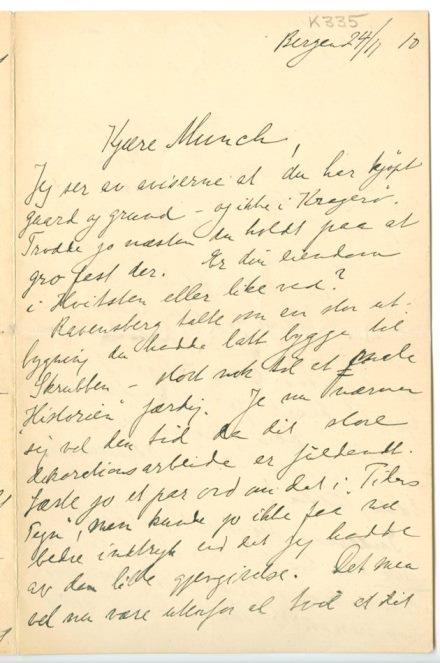 K335
Bergen 24/11 10
Kjære Munch,
Jeg ser av aviserne at du har kjøpt
gaard og grund – og ikke i Kragerø.
Trodde jo næsten du holdt paa at
gro fast der. Er din eiendom
i Hvitsten eller like ved?
Ravensberg talte om en stor ut-
bygning du hadde latt bygge til
Skrubben – stort nok til at male
"Historien" færdig. Je nu nærmer
sig vel den tid da dit store
dekorationsarbeide er fuldendt.
Læste jo et par ord om det i "Tidens
Tegn", man kunde jo ikke faa noe
bedre indtryk end det jeg hadde
av den lille gjengivelse. Det maa
vel nu være utenfor al tvil at dit